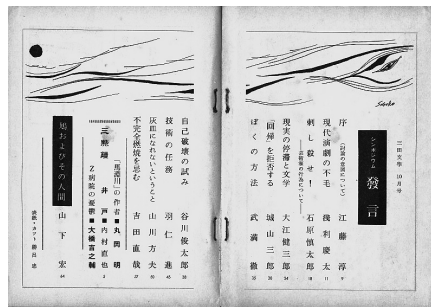 三田文学 10月号
シンポジウム
發言
序 (討論の意図について) 江藤 淳 9
現代演劇の不毛 浅利慶太 11
刺し殺せ! 石原慎太郎 18
——芸術家の行為について——
現実の停滞と文学 大江健三郎 24
「回帰」を拒否する 城山三郎 30
ぼくの方法 武満 徹 35
自己破壊の試み 谷川俊太郎 38
技術の任務 羽仁 進 45
灰皿になれないということ 山川方夫 50
不完全燃焼を忌む 吉田直哉 57
「馬澄川」の作者■丸岡 明
三熱 井戸■内村直也 2
Z病院の憂鬱■大橋吉之輔
鳩およびその人間 山下 宏 64
表紙・カット 勝呂 忠